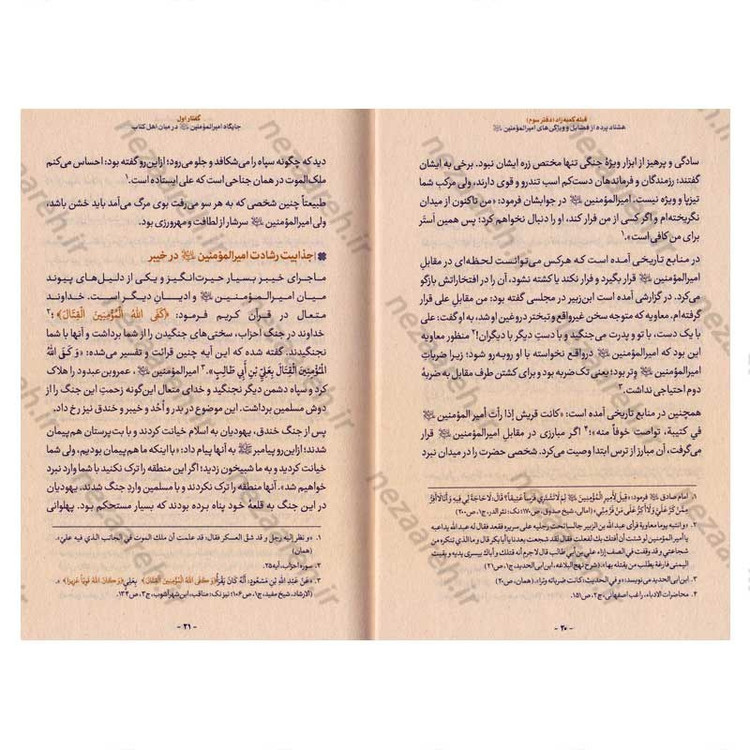 قبله کعبه‌زاد (دفتر سوم)
هشتاد پرده از فضایل و ویژگی‌های امیرالمؤمنین ﷺ
سادگی و پرهیز از ابزار ویژهٔ جنگی تنها مختص زره ایشان نبود. برخی به ایشان
گفتند: رزمندگان و فرماندهان دست‌کم اسب تندرو و قوی دارند، ولی مرکب شما
تیزپا و ویژه نیست. امیرالمؤمنین در جوابشان فرمود: «من تاکنون از میدان
نگریخته‌ام و اگر کسی از من فرار کند، او را دنبال نخواهم کرد؛ پس همین اَستَر
برای من کافی است».۱
در منابع تاریخی آمده است که هرکس می‌توانست لحظه‌ای در مقابل
امیرالمؤمنین قرار بگیرد و فرار نکند یا کشته نشود، آن را در افتخاراتش بازگو
می‌کرد. در گزارشی آمده است ابن‌زبیر در مجلسی گفته بود: من مقابل علی قرار
گرفته‌ام. معاویه که متوجه سخن غیرواقع و تبختر دروغین او شد، به او گفت: علی
با یک دست، با تو و پدرت می‌جنگید و با دستِ دیگر با دیگران!۲ منظور معاویه
این بود که امیرالمؤمنین درواقع نخواسته با او روبه‌رو شود؛ زیرا ضربات
امیرالمؤمنین وتر بود؛ یعنی تک ضربه بود و برای کشتن طرف مقابل به ضربهٔ
دوم احتیاجی نداشت.۳
همچنین در منابع تاریخی آمده است: «کانت قریش إذا رأت أمیر المؤمنین
في کتیبة، تواصت خوفاً منه»؛۴ اگر مبارزی در مقابل امیرالمؤمنین قرار
می‌گرفت، آن مبارز از ترس ابتدا وصیت می‌کرد. شخصی حضرت را در میدان نبرد
۲. محاضرات الادباء، راغب اصفهانی، ج۲، ص۱۵۱.
- ۲۰ -
گفتار اول
جایگاه امیرالمؤمنین در میان اهل کتاب
دید که چگونه سپاه را می‌شکافد و جلو می‌رود؛ ازاین‌رو گفته بود: احساس می‌کنم
ملک‌الموت در همان جناحی است که علی ایستاده است.۱
طبیعتاً چنین شخصی که به هر سو می‌رفت بوی مرگ می‌آمد باید خشن باشد،
ولی امیرالمؤمنین سرشار از لطافت و مهرورزی بود.
جذابیت رشادت امیرالمؤمنین در خیبر
ماجرای خیبر بسیار حیرت‌انگیز و یکی از دلیل‌های پیوند
میان امیرالمؤمنین و ادیان دیگر است. خداوند
متعال در قرآن کریم فرمود: ﴿کَفَی اللهُ المُؤمِنینَ القِتالَ﴾؛۲
خداوند در جنگ احزاب، سختی‌های جنگیدن را از شما برداشت و آنها با شما
نجنگیدند. گفته شده که این آیه چنین قرائت و تفسیر می‌شده: «وَ کَفَی اللهُ
المُؤمِنینَ القِتالَ بِعَلِيِّ بْنِ أَبِي طالِبٍ».۳ امیرالمؤمنین، عمروبن‌عبدود را هلاک
کرد و سپاه دشمن دیگر نجنگید و خدای متعال این‌گونه زحمتِ این جنگ را از
دوش مسلمین برداشت. این موضوع در بدر و اُحُد و خیبر و خندق نیز رخ داد.
پس از جنگ خندق، یهودیان به اسلام خیانت کردند و با بت‌پرستان هم‌پیمان
شدند؛ ازاین‌رو پیامبر به آنها پیام داد: «با اینکه ما هم‌پیمان بودیم، ولی شما
خیانت کردید و به ما شبیخون زدید؛ اگر این منطقه را ترک نکنید با شما وارد نبرد
خواهیم شد». آنها منطقه را ترک نکردند و با مسلمین واردِ جنگ شدند. یهودیان
در این جنگ به قلعهٔ خود پناه برده بودند که بسیار مستحکم بود. پهلوانی
۱. «و نظر إلیه رجل و قد شق العسکر فقال: قد علمت أن ملك الموت في الجانب الذي فیه علي».
(همان)
۲. سوره احزاب، آیه۲۵.
۳. «عَنْ عَبْدِ اللهِ بْنِ مَسْعُودٍ، أَنَّهُ کَانَ یَقْرَأُ ﴿وَ کَفَی اللهُ المُؤمِنینَ القِتالَ﴾ بِعَلِيٍّ ﴿وَ کَانَ اللهُ قَوِیّاً عَزِیزاً﴾».
(الارشاد، شیخ مفید، ج۱، ص۱۰۶؛ نیز نک: مناقب، ابن‌شهرآشوب، ج۳، ص۱۳۴.
- ۲۱ -
nezaareh.ir